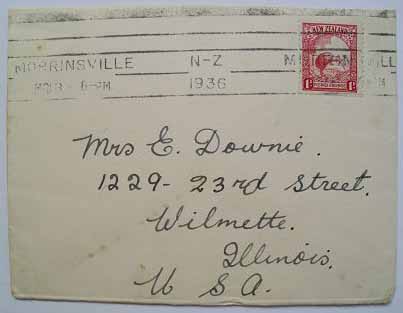 MORRINSVILLE N-Z
6-PM 1936
NEW ZEALAND
1D 1D
Mrs E. Downie.
1229- 23rd Street.
Wilmette.
Illinois.
U S A.